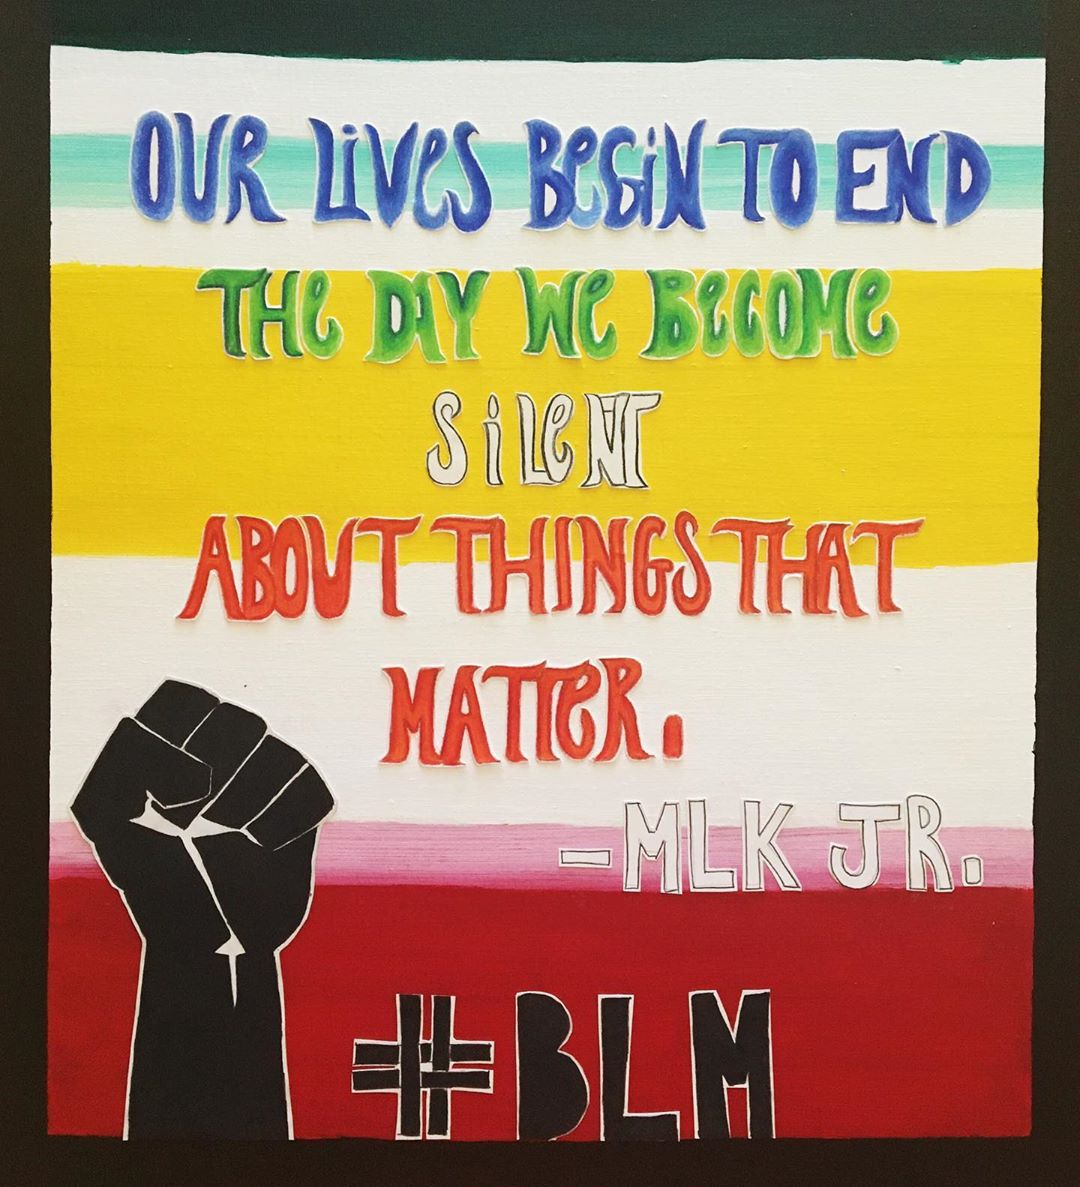 OUR LiVes BeGiN TO END
THe DAY We BecOMe
SiLeNT
ABOUT THINGS THAT
MATTeR.
-MLK JR.
#BLM